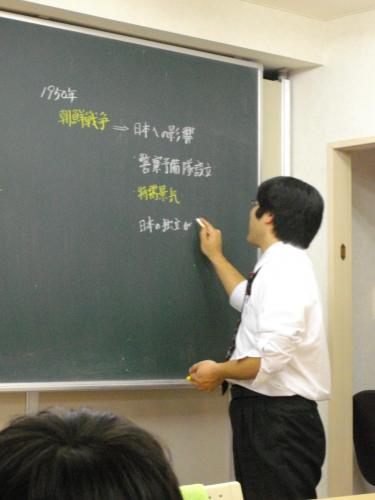 1950年
朝鮮戦争 ⇒ 日本への影響
・警察予備隊設立
・特需景気
日本の独立が